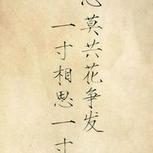 心莫共花争发
一寸相思一寸